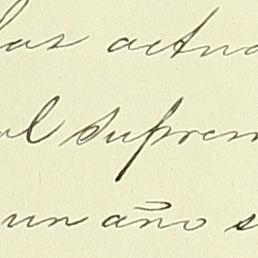 las actua
al suprem
un año s